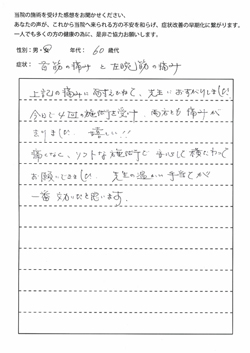 当院の施術を受けた感想をお聞かせください。
あなたの声が、これから当院へ来られる方の不安を和らげ、症状改善の早期化に繋がります。
一人でも多くの方の健康の為に、是非ご協力お願いします。
性別：男・女 年代：60歳代
症状：首筋の痛みと左腕、肩の痛み
上記の痛みに耐えかねて、先生におすがりしました！
今日で4回の施術を受け 両方とも痛みが
なりました。嬉しい!!
痛くなく、ソフトな施術で 安心して横たわって
お願いできました。先生の温かい手当てが
一番効いたと思います。